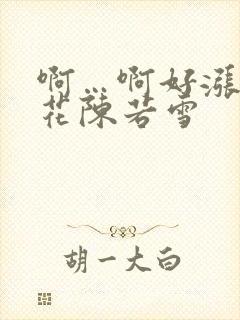 啊…啊好漲
花陳若雪
胡一大白